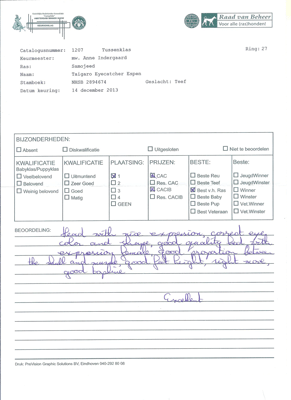 Raad van Beheer
Voor alle (ras)honden!
Catalogusnummer: 1207 Tussenklas Ring: 27
Keurmeester: mw. Anne Indergaard
Ras: Samojeed
Naam: Talgaro Eyecatcher Expen
Stamboek: NHSB 2894674 Geslacht: Teef
Datum keuring: 14 december 2013
BIJZONDERHEDEN:
Absent Diskwalificatie Uitgesloten Niet te beoordelen
KWALIFICATIE KWALIFICATIE PLAATSING: PRIJZEN: BESTE: Beste:
Babyklas/Puppyklas
Veelbelovend Uitmuntend 1 CAC Beste Reu JeugdWinner
Belovend Zeer Goed 2 Res. CAC Beste Teef JeugdWinster
Weinig belovend Goed 3 CACIB Best v.h. Ras Winner
Matig 4 Res. CACIB Beste Baby Winster
GEEN Beste Pup Vet.Winner
Best Veteraan Vet.Winster
BEOORDELING:
Head with nice expression, correct eye
color and shape, good quality
expression, good proportion
the skull and muzzle, good height, right
good topline
Excellent